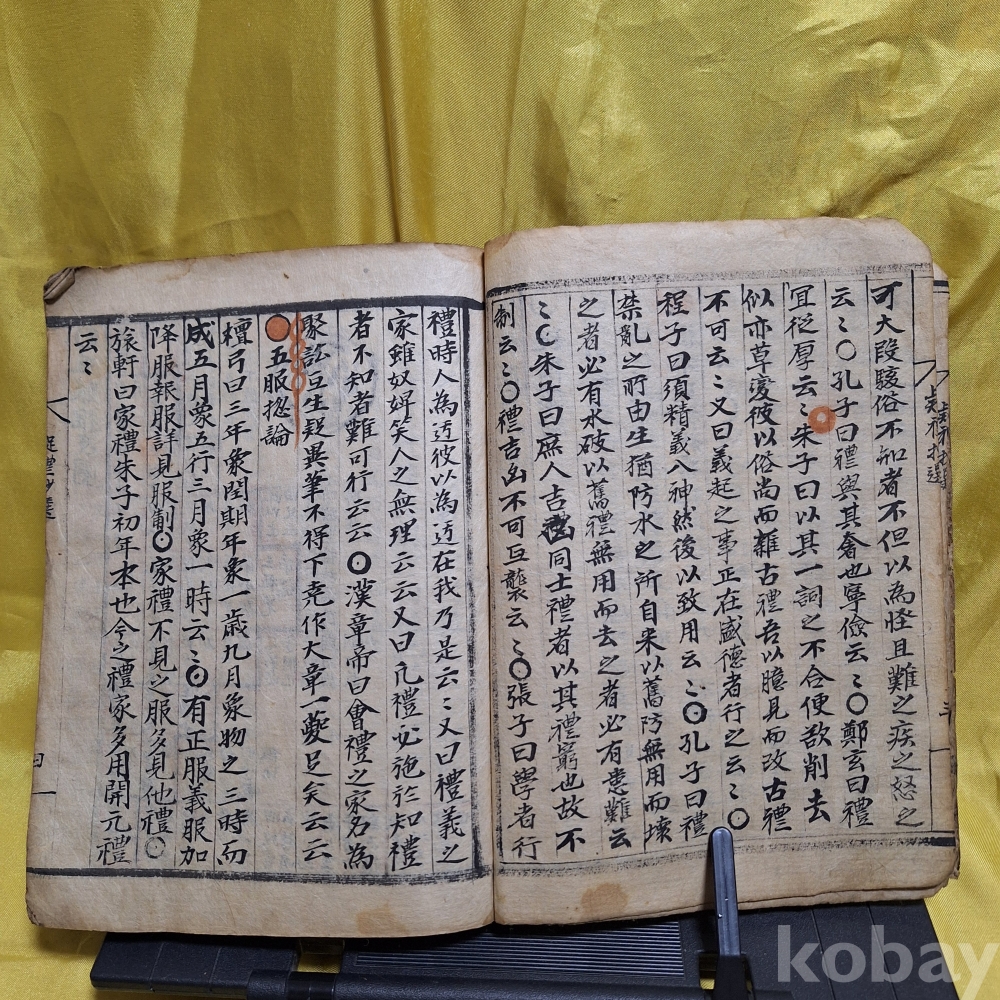 可大段駭俗不知者不但以為怪且難之疾之怒之
云〻〇孔子曰禮與其奢也寧儉云〻〇鄭玄曰禮
冝從厚云〻朱子曰以其一詞之不合便欲削去
似亦草淩彼以俗尚而雜古禮吾以臆見而改古禮
不可云〻又曰義起之事正在盛德者行之云〻〇
程子曰須精義入神然後以致用云〻〇孔子曰禮
禁亂之所由生猶防水之所自来以舊防無用而壊
之者必有水破以舊禮無用而去之者必有患難云
〻〇朱子曰庶人吉禮同士禮者以其禮窮也故不
制云〻〇禮吉凶不可互襲云〻〇張子曰學者行
禮時人為迃彼以為迃在我乃是云〻又曰禮義之
家雖奴婢笑人之無理云云又曰凡禮必施於知禮
者不知者難可行云云〇漢章帝曰會禮之家名為
聚訟互生疑異筆不得下堯作大章一夔足矣云云
五服揔論
檀弓曰三年象閏期年象一歳九月象物之三時而
成五月象五行三月象一時云〻〇有正服義服加
降服報服詳見服制〇家禮不見之服多見他禮〇
旅軒曰家禮朱子初年本也今之禮家多用開元禮
云〻
疑禮抄選
三
四
kobay